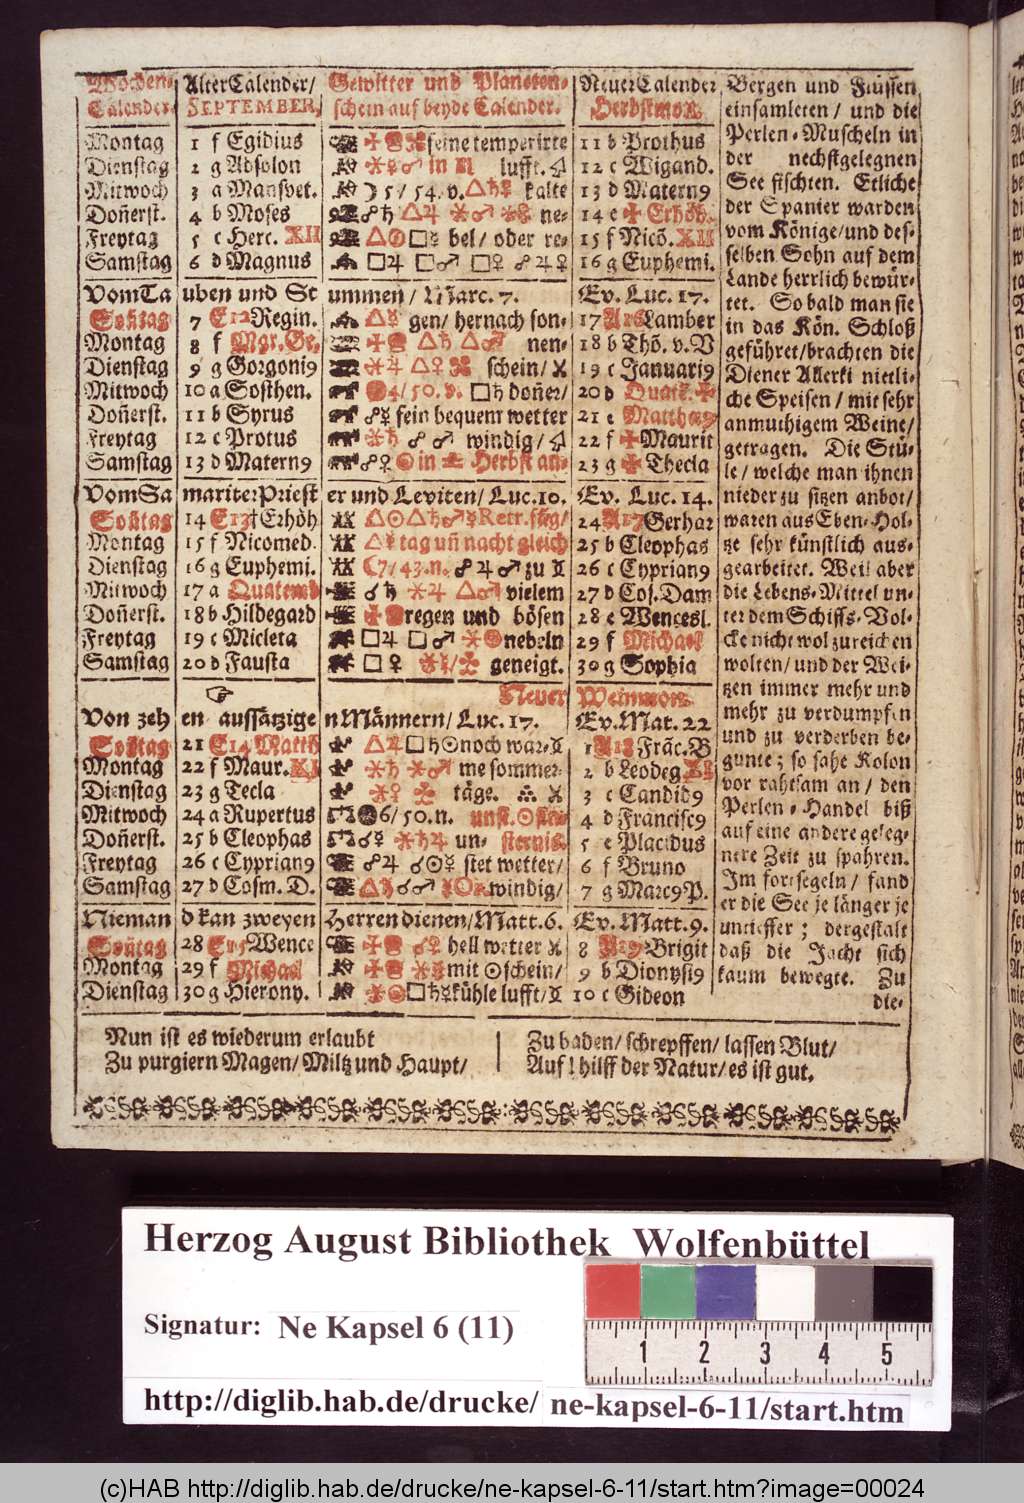 Wochen- Alter Calender/ Gewitter und Planeten- Neuer Calender
Calender. SEPTEMBER, schein auf beyde Calender. Herbstmon.
Montag 1 f Egidius feine temperirte 11 b Prothus
Dienstag 2 g Absolon ☌ ♂ in ♌ lufft. 12 c Wigand.
Mitwoch 3 a Mansvet. ☽ 5/ 54. v. △♄☿ kalte 13 d Matern9
Doñerst. 4 b Moses ☍♄ △♃ ⚹♂ ne- 14 e ✠ Erhöh.
Freytag 5 c Herc. XII △☉ □☿ bel/ oder re- 15 f Nicõ. XII
Samstag 6 d Magnus □♃ □♂ □♀ ☍♃♀ 16 g Euphemi.
Vom Tauben und Stummen/ Marc. 7. Ev. Luc. 17.
Soñtag 7 E12 Regin. △☿ gen/ hernach son- 17 A16 Lamber
Montag 8 f Mar. Ge. △♄ △♂ nen- 18 b Thõ. v. V
Dienstag 9 g Gorgoni9 ⚹♃ △♀ schein/ 19 c Januari9
Mitwoch 10 a Sosthen. 4/ 50. v. □♄ doñer/ 20 d Quatẽ. ✠
Doñerst. 11 b Syrus ☍☿ fein bequem wetter 21 e Matthæ9
Freytag 12 c Protus ⚹♄ ☍ ♂ windig/ 22 f ✠ Maurit
Samstag 13 d Matern9 ☍♀ ☉ in ♎ Herbst an- 23 g ✠ Thecla
Vom Samariter Priester und Leviten/ Luc. 10. Ev. Luc. 14.
Soñtag 14 E13 † Erhöh △☉△♄♂☿ Retr. füg/ 24 A17 Gerhar
Montag 15 f Nicomed. △☿ tag uñ nacht gleich 25 b Cleophas
Dienstag 16 g Euphemi. ☾7/ 43. n. ☍♃♂ zu 26 c Cyprian9
Mitwoch 17 a Quatemb ☌♄ ⚹♃ △♂ vielem 27 d Cos. Dam
Doñerst. 18 b Hildegard regen und bösen 28 e Wencesl.
Freytag 19 c Micleta □♃ □♂ ⚹☉ nebeln 29 f Michael
Samstag 20 d Fausta □♀ geneigt. 30 g Sophia
☞ Neuer Weinmon.
Von zehen aussätzigen Männern/ Luc. 17. Ev. Mat. 22
Soñtag 21 E14 Matth △♃□♄☉ noch war- 1 A18 Fräc. B
Montag 22 f Maur. XI ⚹♄ ⚹♂ me sommer- 2 b Leodeg XI
Dienstag 23 g Tecla ⚹♀ täge. 3 c Candid9
Mitwoch 24 a Rupertus 6/ 50. n. unst. ☉ fin- 4 d Francisc9
Doñerst. 25 b Cleophas ☌☿ ⚹♄♃ un- sternis. 5 e Placidus
Freytag 26 c Cyprian9 ☍♃ ☌☉☿ stet wetter/ 6 f Bruno
Samstag 27 d Cosm. D. △♄ ☌♂ windig/ 7 g Marc9 P.
Niemand kan zweyen Herren dienen/ Matt. 6. Ev. Matt. 9.
Soñtag 28 E15 Wence ☌♀ hell wetter 8 A19 Brigit
Montag 29 f Michael mit ☉schein/ 9 b Dionysi9
Dienstag 30 g Hierony. ⚹☉□♄☿ kühle lufft/ 10 c Gideon
Bergen und Flüssen
einsamleten/ und die
Perlen-Muscheln in
der nechstgelegnen
See fischten. Etliche
der Spanier warden
vom Könige/ und des-
selben Sohn auf dem
Lande herrlich bewür-
tet. So bald man sie
in das Kön. Schloß
geführet/ brachten die
Diener Allerki nietli-
che Speisen/ mit sehr
anmuthigem Weine/
getragen. Die Stü-
le/ welche man ihnen
nieder zu sitzen anbot/
waren aus Eben-Hol-
tze sehr künstlich aus-
gearbeitet. Weil aber
die Lebens-Mittel un-
ter dem Schiffs-Vol-
cke nicht wol zureichen
wolten/ und der Wei-
tzen immer mehr und
mehr zu verdumpfen
und zu verderben be-
gunte; so sahe Kolon
vor rahtsam an/ den
Perlen-Handel biß
auf eine andere geleg-
nere Zeit zu spahren.
Im fortsegeln/ fand
er die See je länger je
untieffer; dergestalt
daß die Jacht sich
kaum bewegte. Zu
die-
Nun ist es wiederum erlaubt
Zu purgiern Magen/ Miltz und Haupt/
Zu baden/ schrepffen/ lassen Blut/
Auf! hilff der Natur/ es ist gut.
Herzog August Bibliothek Wolfenbüttel
Signatur: Ne Kapsel 6 (11)
1 2 3 4 5
http://diglib.hab.de/drucke/ ne-kapsel-6-11/start.htm
(c)HAB http://diglib.hab.de/drucke/ne-kapsel-6-11/start.htm?image=00024